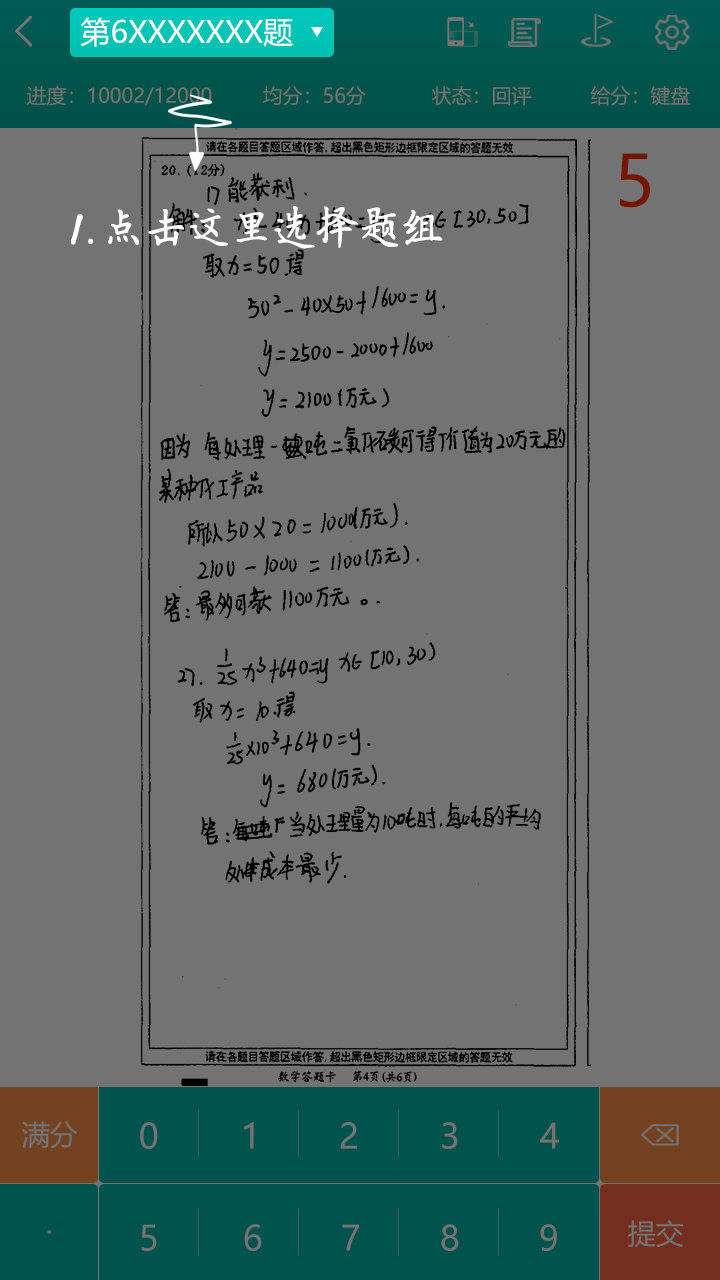 第6XXXXXXX题
进度：10002/12000 均分：56分 状态：回评 给分：键盘
请在各题目答题区域作答，超出黑色矩形边框限定区域的答题无效
5
20．(12分)
1) 能获利．
1.点击这里选择题组
∈[30,50]
取x=50得
50²-40×50+1600=y.
y=2500-2000+1600
y=2100(万元)
因为 每处理一吨二氧化碳可得价值为20万元的
某种化工产品
所以50×20=1000(万元).
2100-1000=1100(万元).
答：最多可获1100万元。
2). 1/25 x³+640=y x∈[10,30)
取x=10.得
1/25×10³+640=y.
y=680(万元).
答：当处理量为10吨时，每吨的平均
成本最少.
请在各题目答题区域作答，超出黑色矩形边框限定区域的答题无效
数学答题卡 第4页(共6页)
满分 0 1 2 3 4
· 5 6 7 8 9 提交